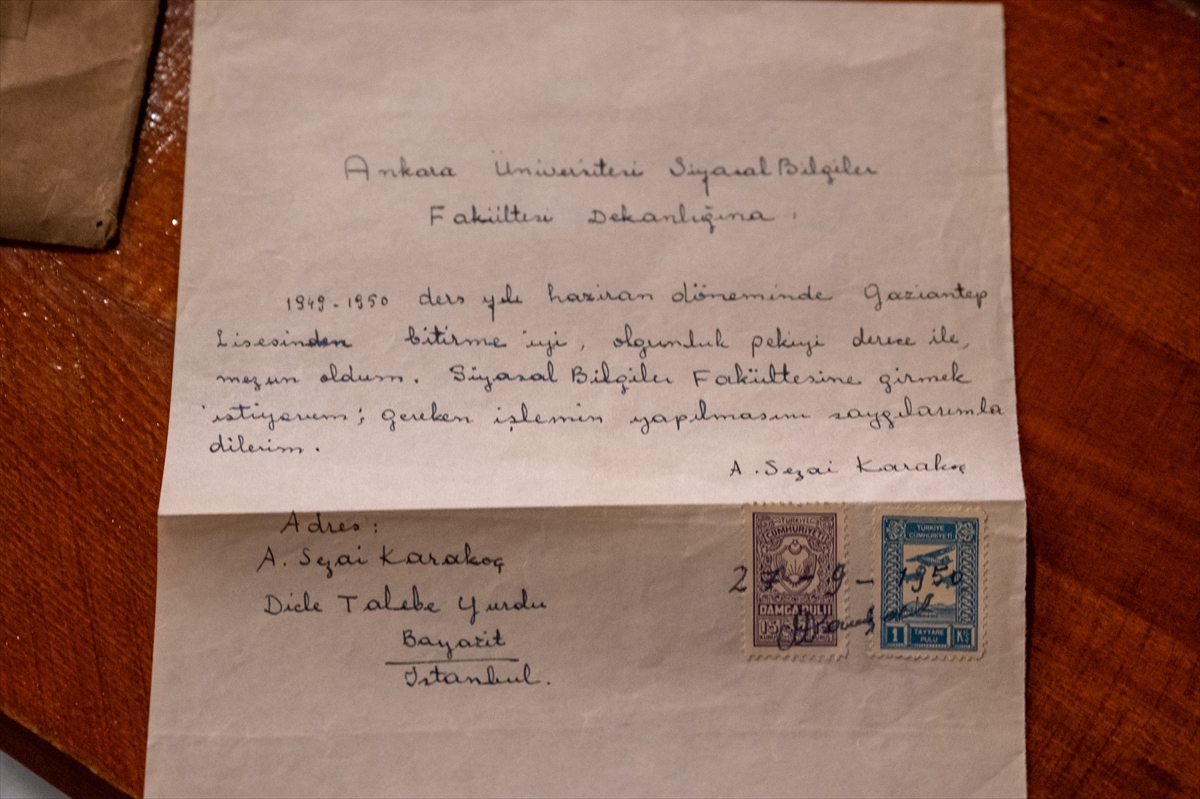 Ankara Üniversitesi Siyasal Bilgiler
Fakültesi Dekanlığına .
1949-1950 ders yılı haziran döneminde Gaziantep
Lisesinden bitirme iyi, olgunluk pekiyi derece ile,
mezun oldum. Siyasal Bilgiler Fakültesine girmek
istiyorum; gereken işlemin yapılmasını saygılarımla
dilerim.
A. Sezai Karakoç
Adres:
A. Sezai Karakoç
Dicle Talebe Yurdu
Bayazit
İstanbul.
TÜRKİYE
CUMHURİYETİ
DAMGA PULU
15
TÜRKİYE
CUMHURİYETİ
1 TAYYARE PULU Kş
27-9-1950